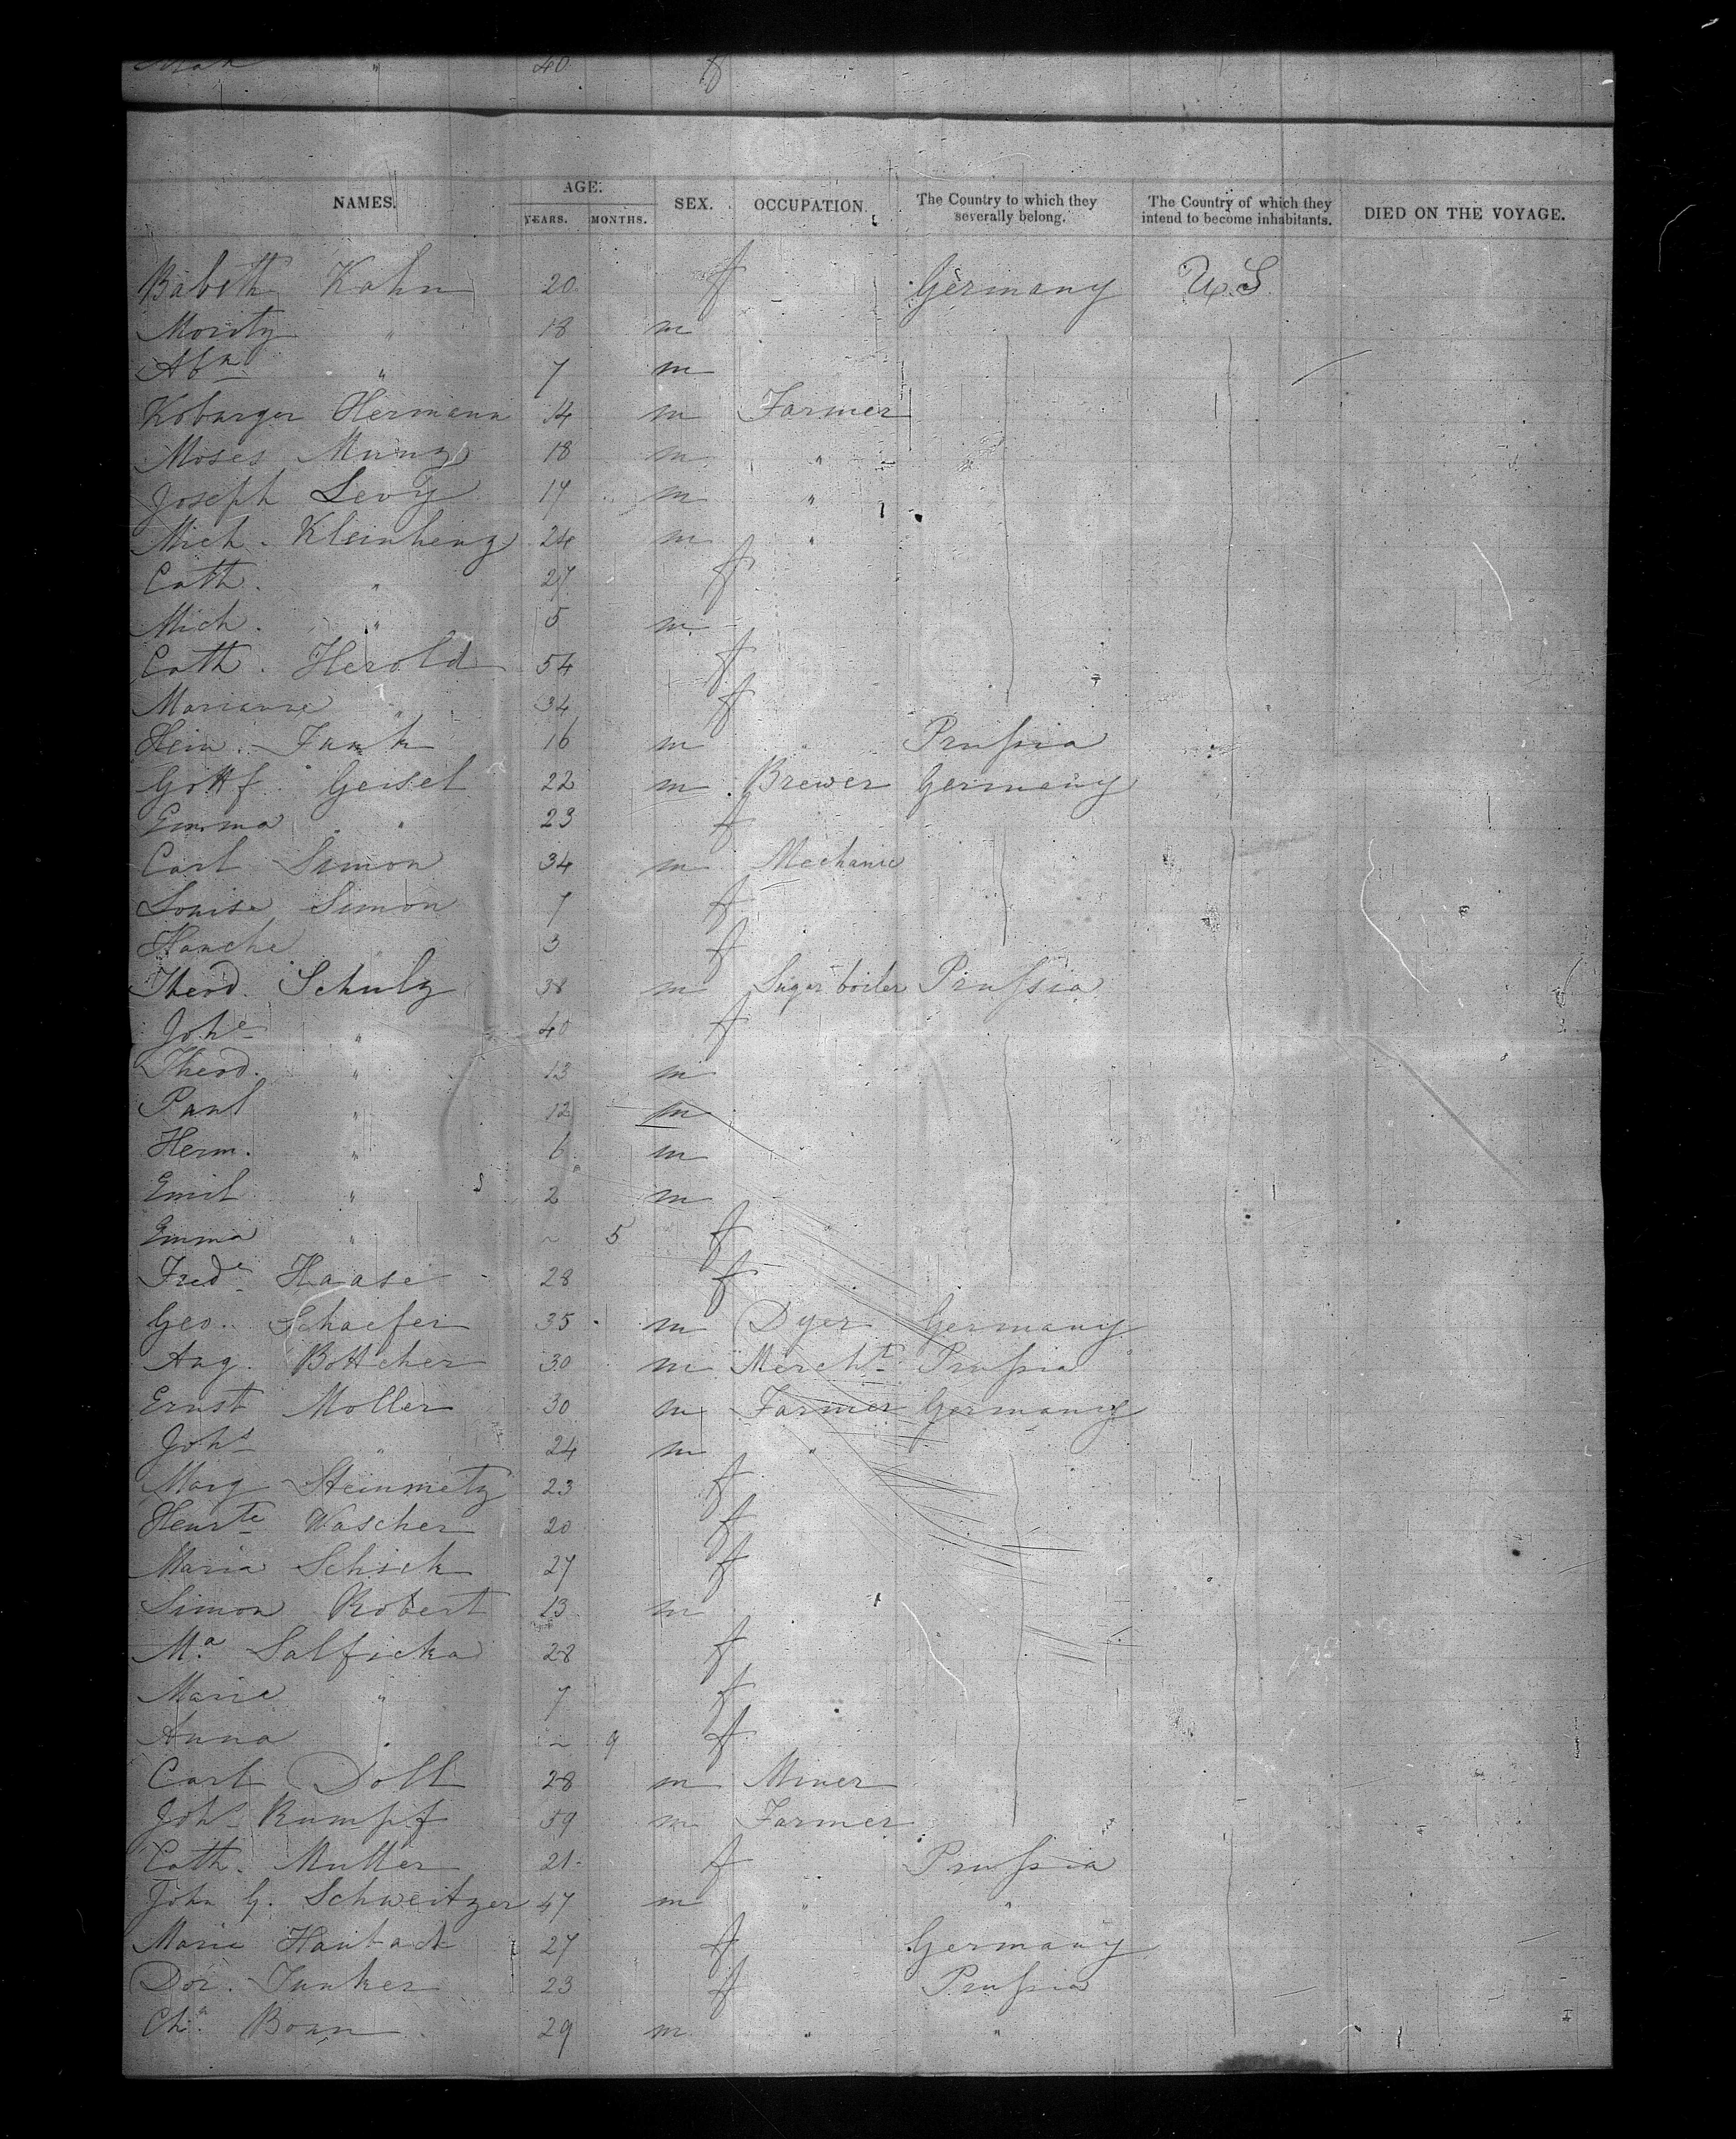 " 40 f
NAMES. AGE: YEARS. MONTHS. SEX. OCCUPATION. The Country to which they severally belong. The Country of which they intend to become inhabitants. DIED ON THE VOYAGE.
Babeth Kahn 20 f Germany U.S
Moritz " 18 m
Abm " 7 m
Koburger Hermann 14 m Farmer
Moses Munz 18 m "
Joseph Levy 17 m "
Mich. Kleinhenz 24 m "
Cath. " 27 f
Mich. " 5 m
Cath. Herold 54 f
Marianne " 34 f
Hein. Funk 16 m " Prussia
Gottf. Geisel 22 m Brewer Germany
Emma " 23 f
Carl Simon 34 m Mechanic
Louise Simon 7 f
Hanche " 3 f
Theod. Schulz 38 m Sugar boiler Prussia
Johe " 40 f
Theod. " 13 m
Paul " 12 m
Herm. " 6 m
Emil " 2 m
Emma " ~ 5 f
Frede Haase 28 f
Geo. Schaefer 35 m Dyer Germany
Aug. Bottcher 30 m Mercht Prussia
Ernst Moller 30 m Farmer Germany
Johs " 24 m "
Marg Steinmetz 23 f
Henrte Wascher 20 f
Maria Schick 27 f
Simon Robert 13 m
Ma. Salficka 28 f
Marie " 7 f
Anna " ~ 9 f
Carl Doll 28 m Miner
Johs Rumpf 59 m Farmer
Cath. Muller 21 f " Prussia
John G. Schweitzer 47 m " "
Marie Haubach 27 f Germany
Dor. Junker 23 f Prussia
Chs. Bonn 29 m " "